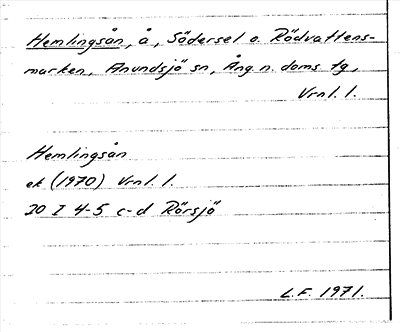 Hemlingsån, å, Södersel o. Rödvattens-
marken, Anundsjö sn, Ång n. doms tg,
Vrnl. l.
Hemlingsån
ek (1970) Vrnl. l.
20 I 4-5 c-d Rörsjö
L.F. 1971.